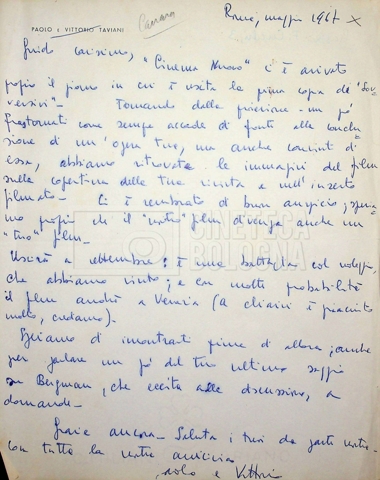 Roma, maggio 1967 x
PAOLO e VITTORIO TAVIANI
Guido carissimo, "Cinema Nuovo" ci è arrivato
proprio il giorno in cui è uscita la prima copia de "Sov
versivi" - Tornando dalla proiezione - un po'
frastornati come sempre accade di fronte alla conclu
sione di un'opera tua, ma anche convinti di
essa, abbiamo ritrovato le immagini del film
sulla copertina della tua rivista e nell'inserto
filmato - Ci è sembrato di buon auspicio; speria
mo proprio che il "nostro" film divenga anche un
"tuo" film -
Uscirà a settembre: è una battaglia col noleggio,
che abbiamo vinto; e con molta probabilità
il film andrà a Venezia (a Chiarini è piaciuto
molto, crediamo).
Speriamo di incontrarti prima di allora; anche
per parlare un po' del tuo ultimo saggio
su Bergman, che eccita alla discussione, a
domande -
Grazie ancora - Saluta i tuoi da parte nostra
con tutta la nostra amicizia
Paolo e Vittorio
CINETECA
BOLOGNA